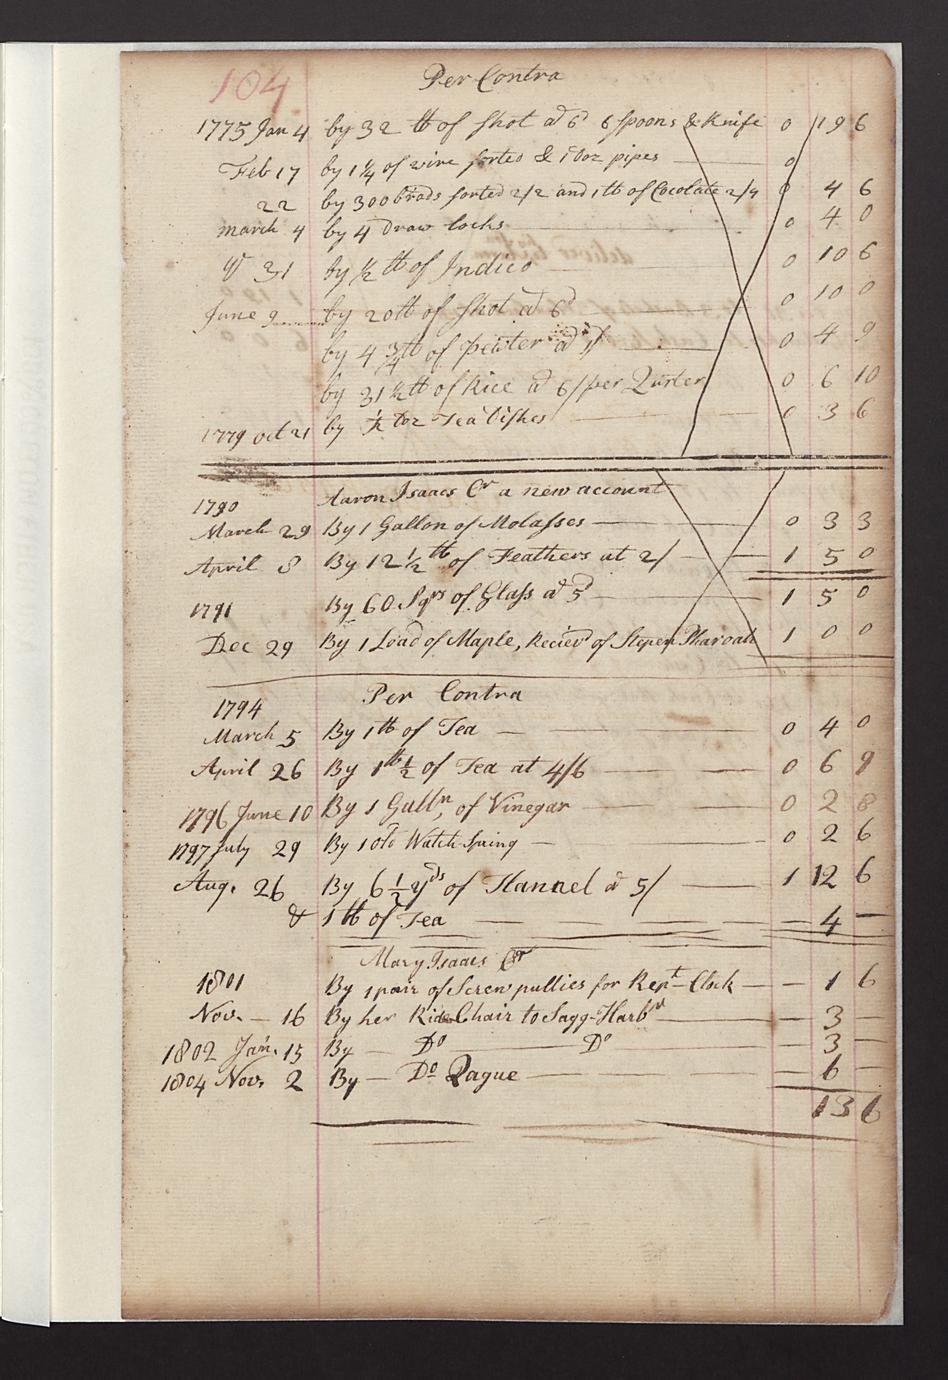 104 Per Contra
1775 Jan 4 by 32 lb of Shot a 6d 6 Spoons & Knife 0 19 6
Feb 17 by 1 1/4 of wire sorted & 1 doz pipes 0
22 by 300 brads sorted 2/2 and 1 lb of Cocolate 2/4 0 4 6
march 4 by 4 Draw locks 0 4 0
Do 31 by 1/2 lb of Indico 0 10 6
June 9 by 20 lb of Shot a 6d 0 10 0
by 4 3/4 lb of pewter a 1/ 0 4 9
by 31 1/2 lb of Rice a 6/ per Qurter 0 6 10
1779 oct 21 by 1/2 Doz Tea Dishes 0 3 6
1790 Aaron Isaacs Cr a new account
March 29 By 1 Gallon of Molasses 0 3 3
April 8 By 12 1/2 lb of Feathers at 2/ 1 5 0
1791 By 60 Sqrs of Glass a 5d 1 5 0
Dec 29 By 1 Load of Maple, Reciev'd of Stepen Pharoah 1 0 0
1794 Per Contra
March 5 By 1 lb of Tea 0 4 0
April 26 By 1 lb 1/2 of Tea at 4/6 0 6 9
1796 June 10 By 1 Galln, of Vinegar 0 2 8
1797 July 29 By 1 old Watch Spring 0 2 6
Aug. 26 By 6 1/2 yds of Flannel a 5/ 1 12 6
& 1 lb of Tea - 4 -
Mary Isaacs Cr
1801 By 1 pair of Screw pullies for Rept Clock - 1 6
Nov. 16 By her Chair to Sagg-Harbr 3 -
1802 Jan. 15 By Do Do 3 -
1804 Nov. 2 By Do 6 -
13 6